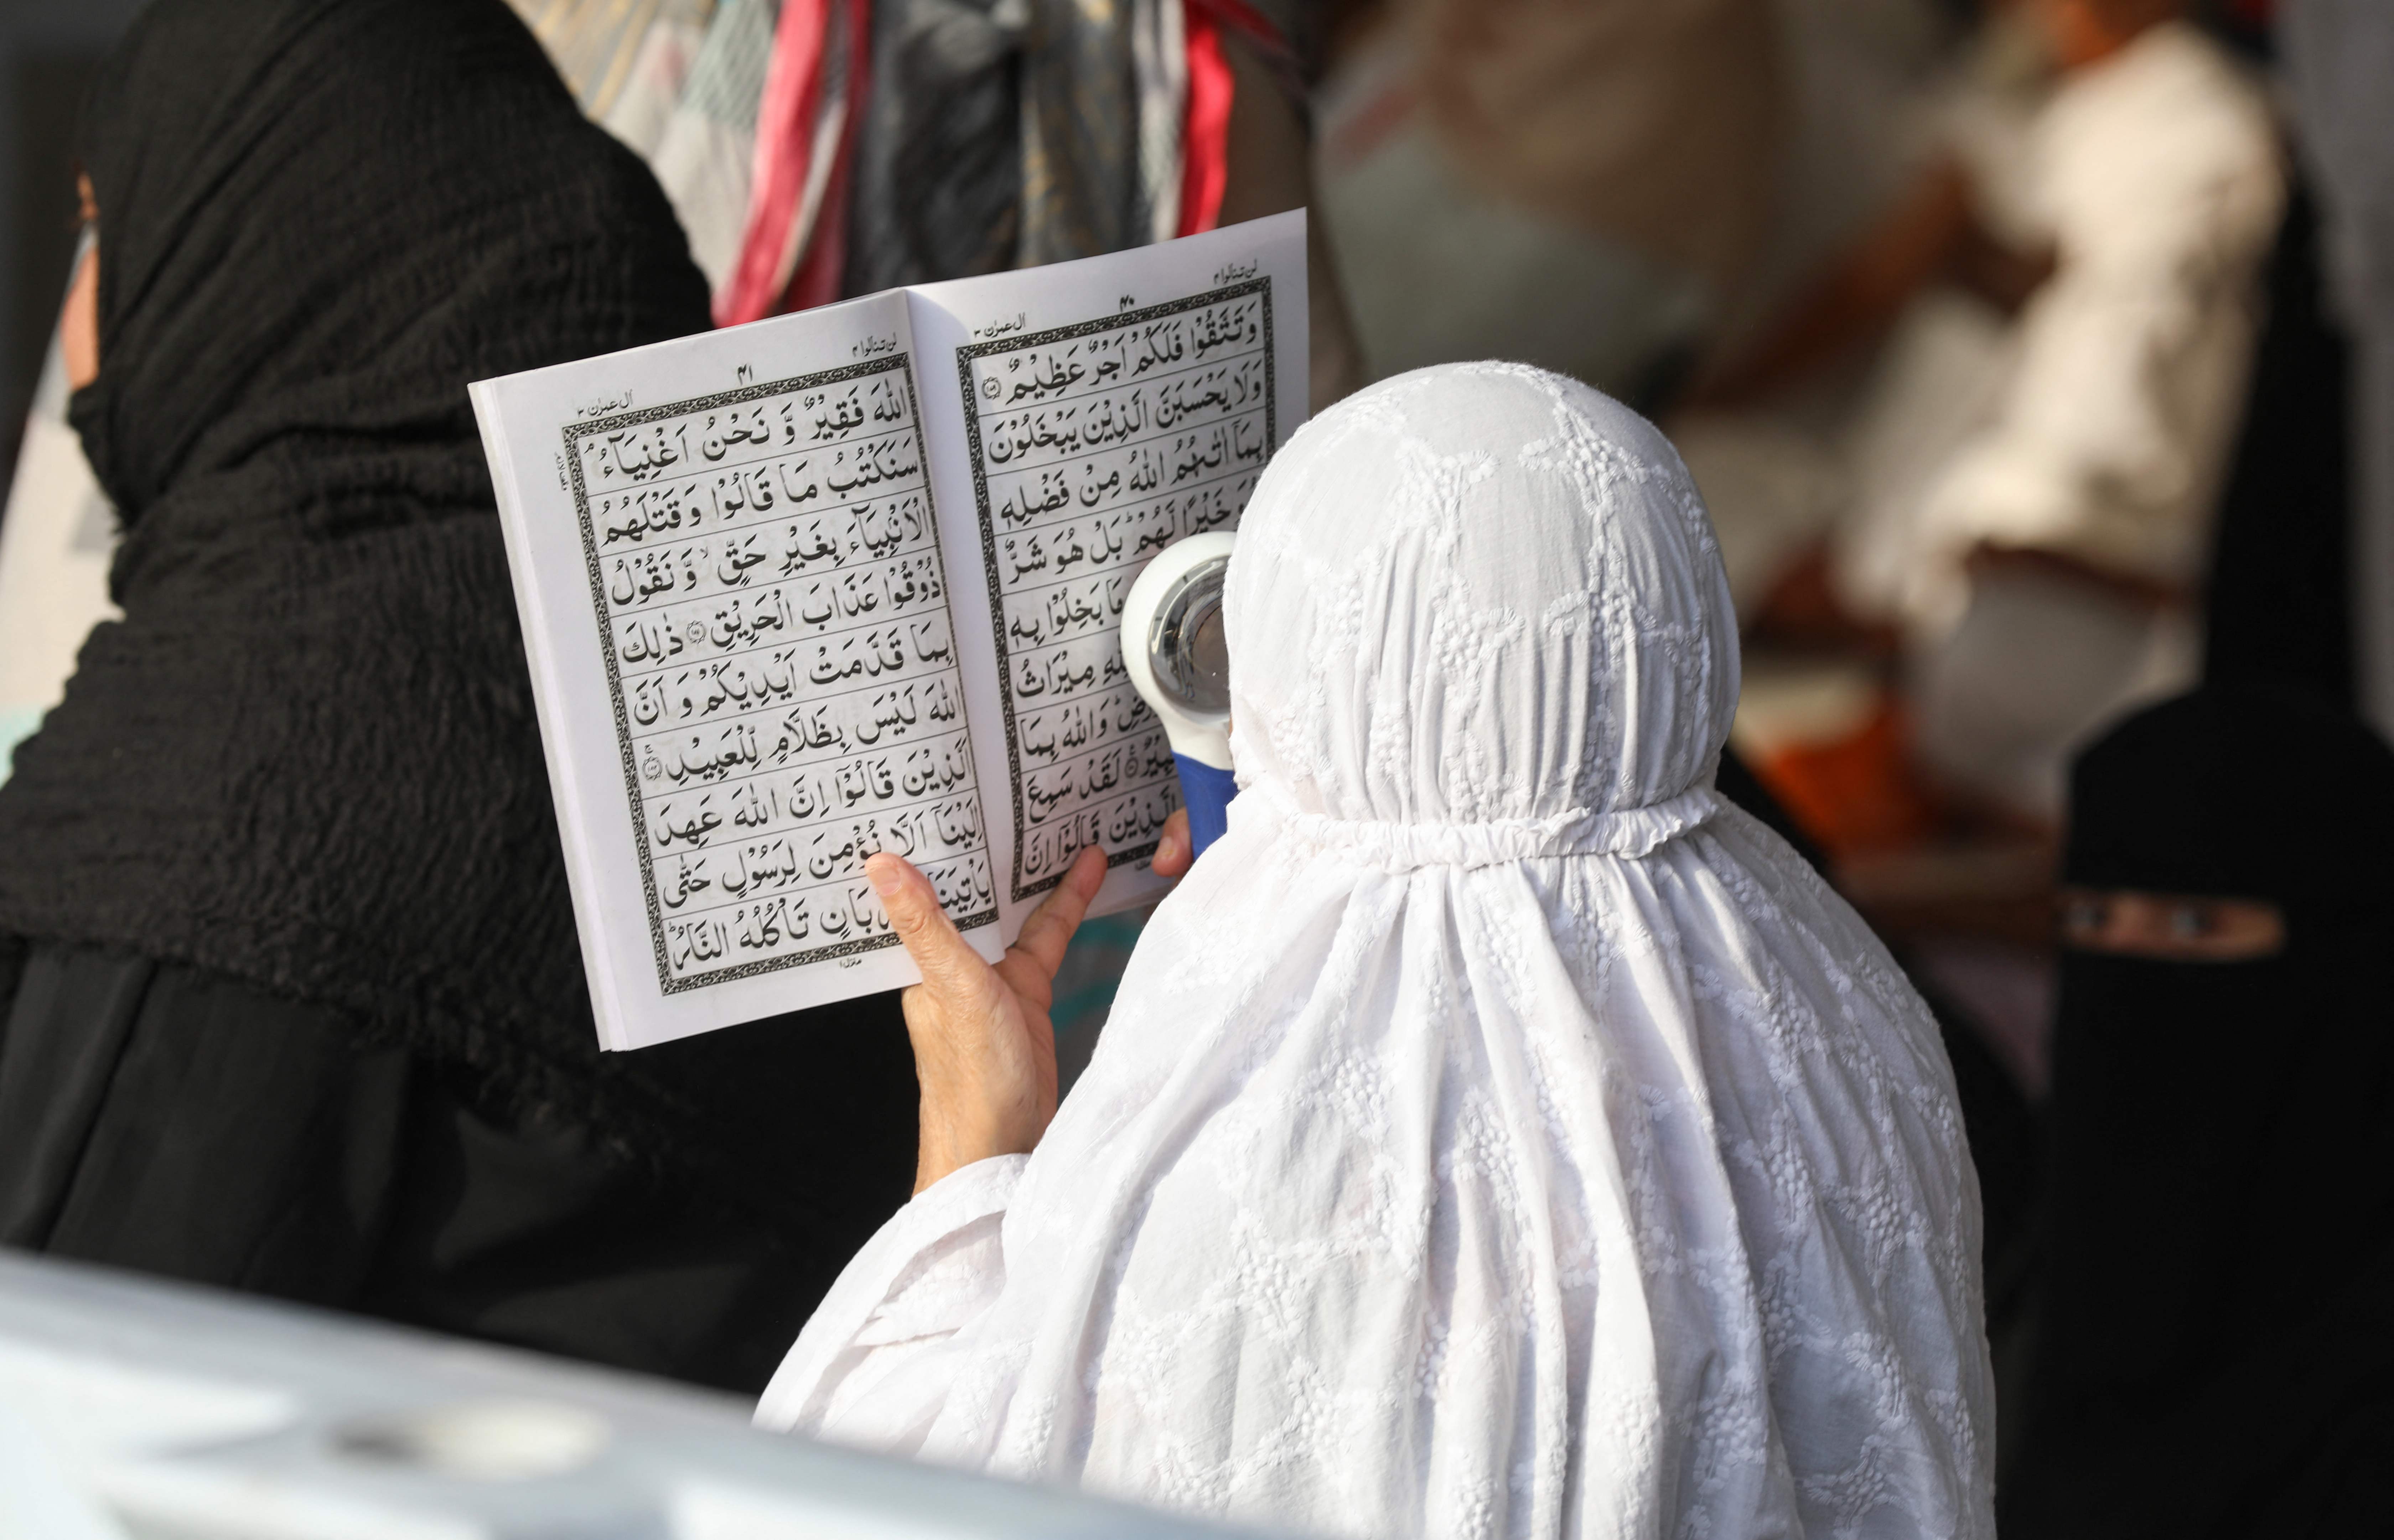 لن تنالوا ۴
۴۰
اٰل عمرٰن ۳
وَتَتَّقُوْا فَلَكُمْ اَجْرٌ عَظِيْمٌ
وَلَا يَحْسَبَنَّ الَّذِيْنَ يَبْخَلُوْنَ
بِمَاۤ اٰتٰىهُمُ اللّٰهُ مِنْ فَضْلِهٖ
خَيْرًا لَّهُمْ ؕ بَلْ هُوَ شَرٌّ
بَخِلُوْا بِهٖ
مِيْرَاثُ
وَاللّٰهُ بِمَا
لَقَدْ سَمِعَ
الَّذِيْنَ قَالُوْۤا اِنَّ
لن تنالوا ۴
۴۱
اٰل عمرٰن ۳
اللّٰهَ فَقِيْرٌ وَّ نَحْنُ اَغْنِيَآءُ ۘ
سَنَكْتُبُ مَا قَالُوْا وَقَتْلَهُمُ
الْاَنْۢبِيَآءَ بِغَيْرِ حَقٍّ ۙ وَّ نَقُوْلُ
ذُوْقُوْا عَذَابَ الْحَرِيْقِ ۝۱۸۱ ذٰلِكَ
بِمَا قَدَّمَتْ اَيْدِيْكُمْ وَ اَنَّ
اللّٰهَ لَيْسَ بِظَلَّامٍ لِّلْعَبِيْدِ ۝۱۸۲ۚ
اَلَّذِيْنَ قَالُوْۤا اِنَّ اللّٰهَ عَهِدَ
اِلَيْنَاۤ اَلَّا نُؤْمِنَ لِرَسُوْلٍ حَتّٰى
تَاْكُلُهُ النَّارُ ؕ
منزل ۱